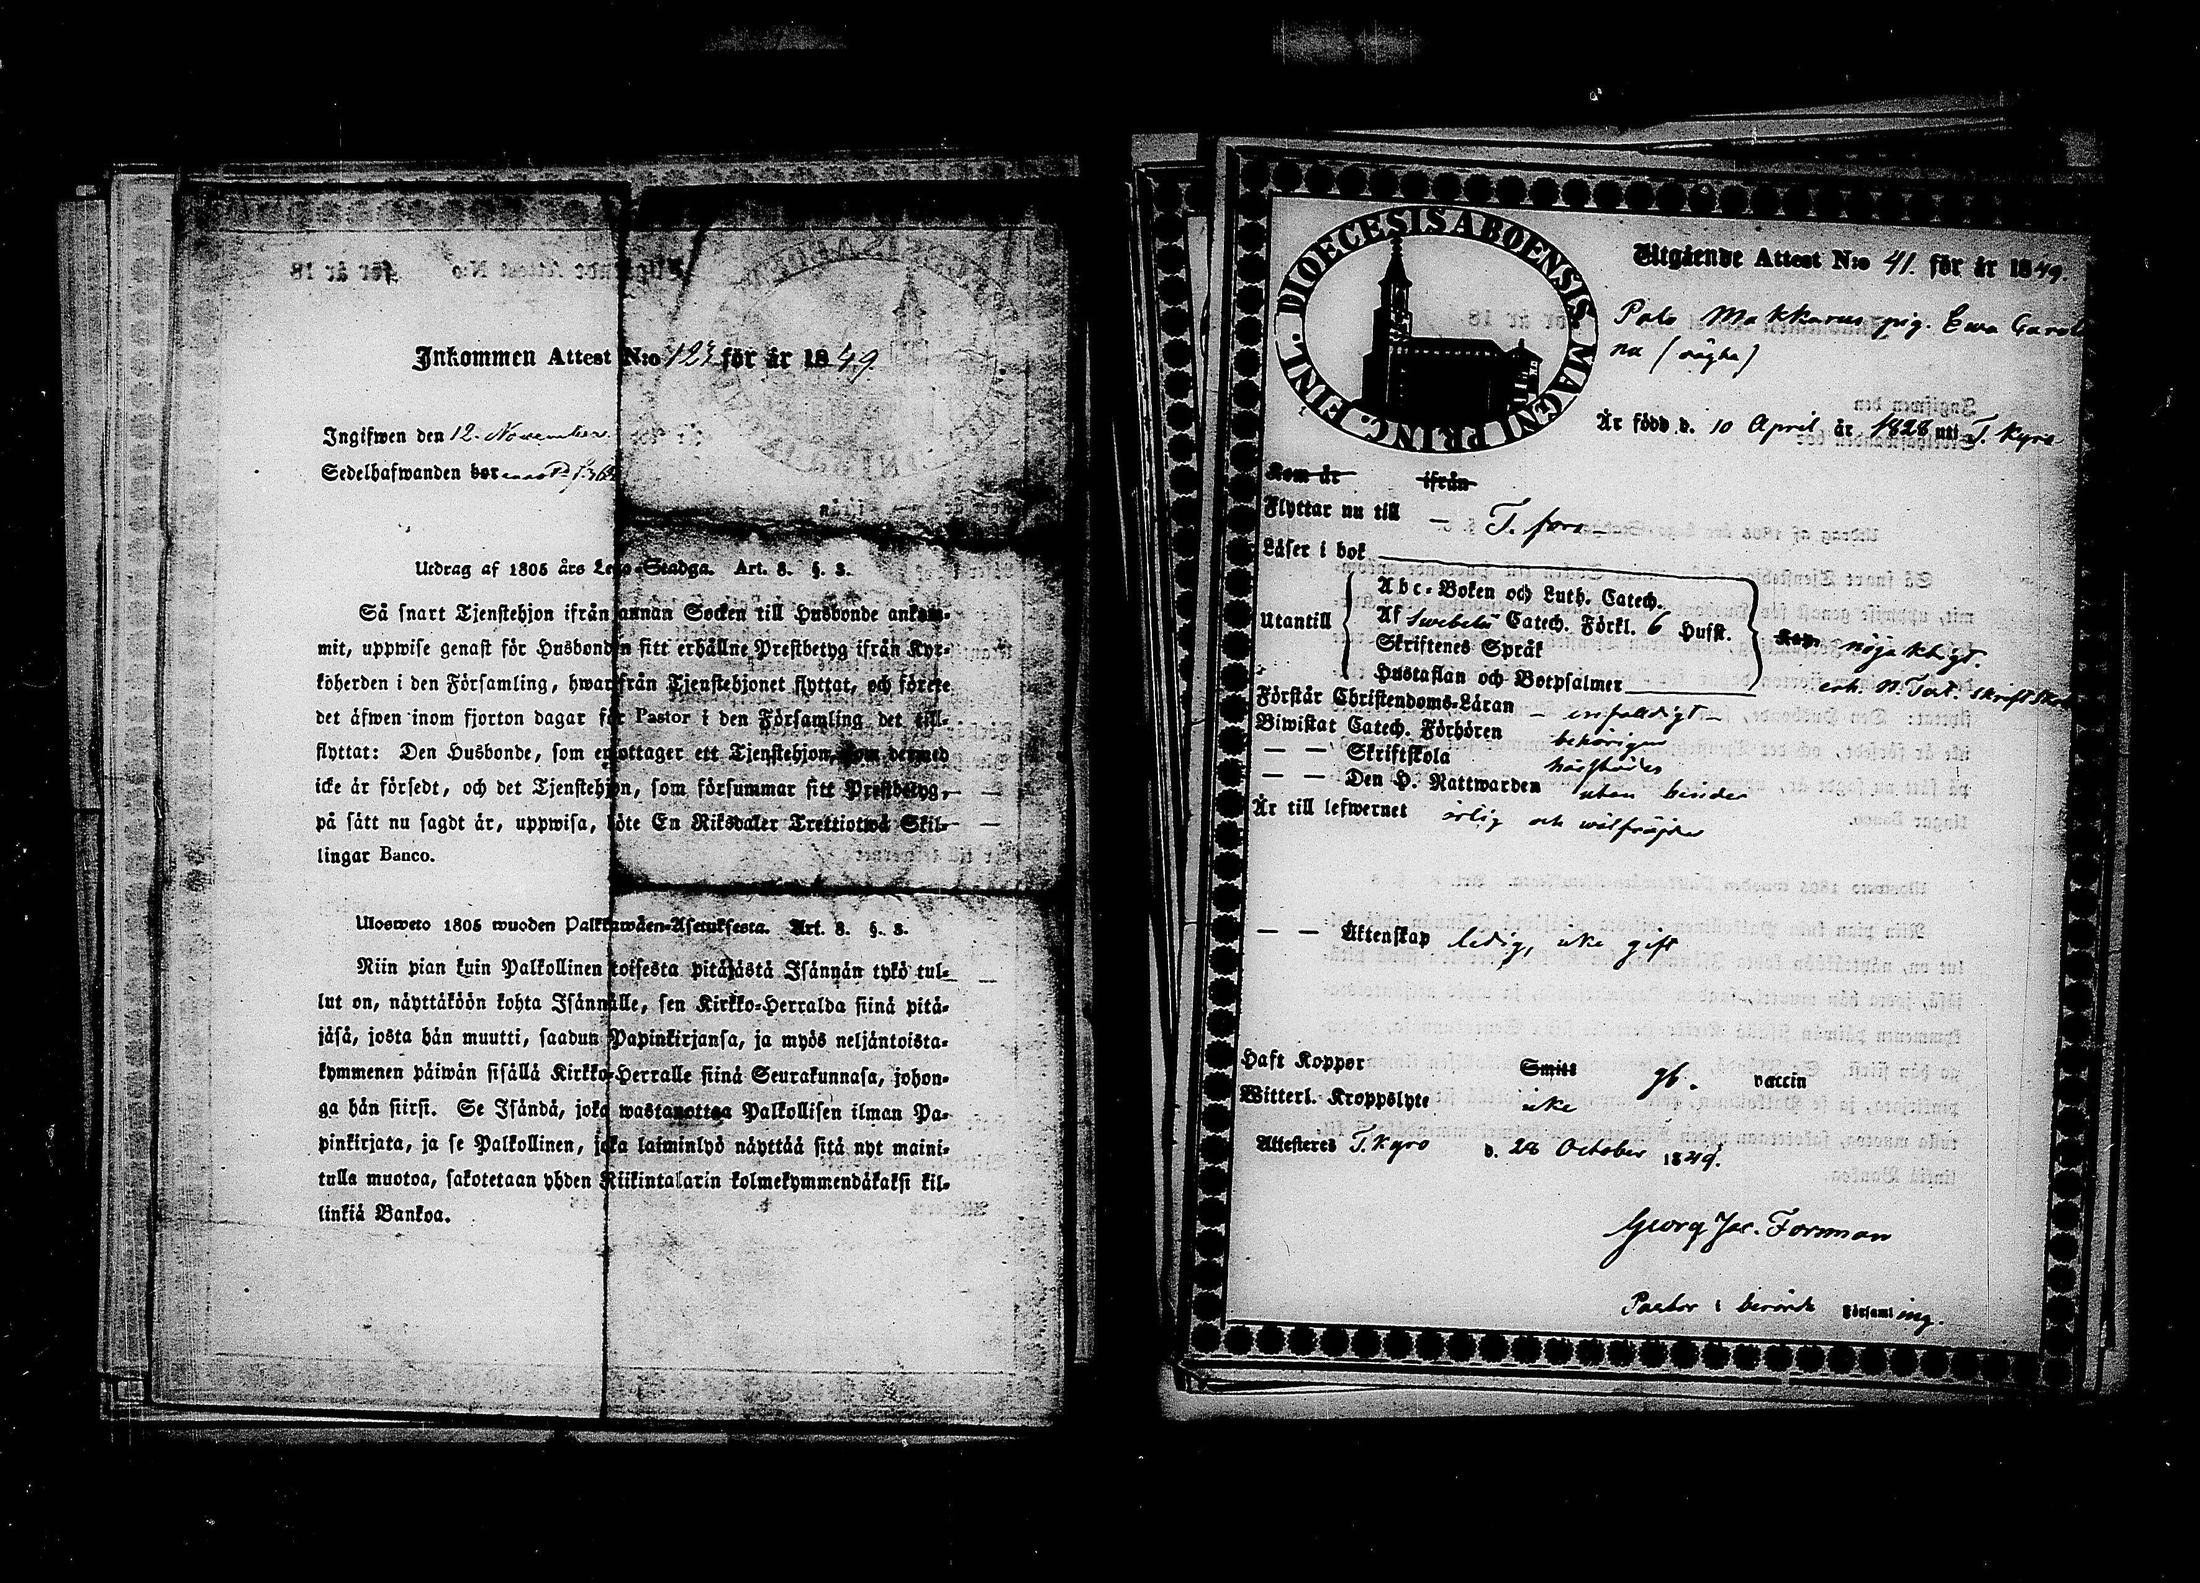 Inkommen Attest N:o 123 för år 1849
Ingifwen den 12 November
Sedelhafwanden bor
Utdrag af 1805 års Lego-Stadga. Art. 8. §. 3.
Så snart Tjenstehjon ifrån annan Socken till Husbonde ankom-
mit, uppwise genast för Husbonden sitt erhållne Prestbetyg ifrån Kyr-
koherden i den Församling, hwarifrån Tjenstehjonet flyttat, och förete
det äfwen inom fjorton dagar för Pastor i den Församling det till-
flyttat: Den Husbonde, som emottager ett Tjenstehjon, som dermed
icke är försedt, och det Tjenstehjon, som försummar sitt Prestbetyg,
på sätt nu sagdt är, uppwisa, böte En Riksdaler Trettiotwå Skil-
lingar Banco.
Ulosweto 1805 wuoden Palkkawäen-Asetuksesta. Art. 8. §. 3.
Niin pian kuin Palkollinen toisesta pitäjästä Isännän tykö tul-
lut on, näyttäköön kohta Isännälle, sen Kirkko-Herralda siinä pitä-
jäsä, josta hän muutti, saadun Papinkirjansa, ja myös neljäntoista-
kymmenen päiwän sisällä Kirkko-Herralle siinä Seurakunnasa, johon-
ga hän siirsi. Se Isändä, joka wastanottaa Palkollisen ilman Pa-
pinkirjata, ja se Palkollinen, joka laiminlyö näyttää sitä nyt maini-
tulla muotoa, sakotetaan yhden Riikintalarin kolmekymmendäkaksi kil-
linkiä Bankoa.
DIOECESIS ABOENSIS. MAGNI PRINC. FINL.
Utgående Attest N:o 41. för år 1849.
Palo Makkarus pig. Ewa Caroli
na
Är född d. 10 April år 1828 uti T. Kyro
Kom år ifrån
Flyttar nu till — T. fors —
Läser i bok
Utantill
Abc-Boken och Luth. Catech.
Af Swebelii Catech. Förkl. 6 Hufst.
Skriftenes Språk
Hustaflan och Botpsalmer
nöjaktigt.
Förstår Christendoms-Läran — enfaldigt —
Biwistat Catech. Förhören behörigen
— — Skriftskola
— — Den H. Nattwarden utan hinder
Är till lefwernet ärlig och wälfräjdad
— — Äktenskap ledig, icke gift
Haft Koppor Smitt gb. vaccin
Witterl. Kroppslyte icke
Attesteres T. Kyro d. 28 October 1849.
Georg Jac. Forsman
Pastor i berörde Församling.